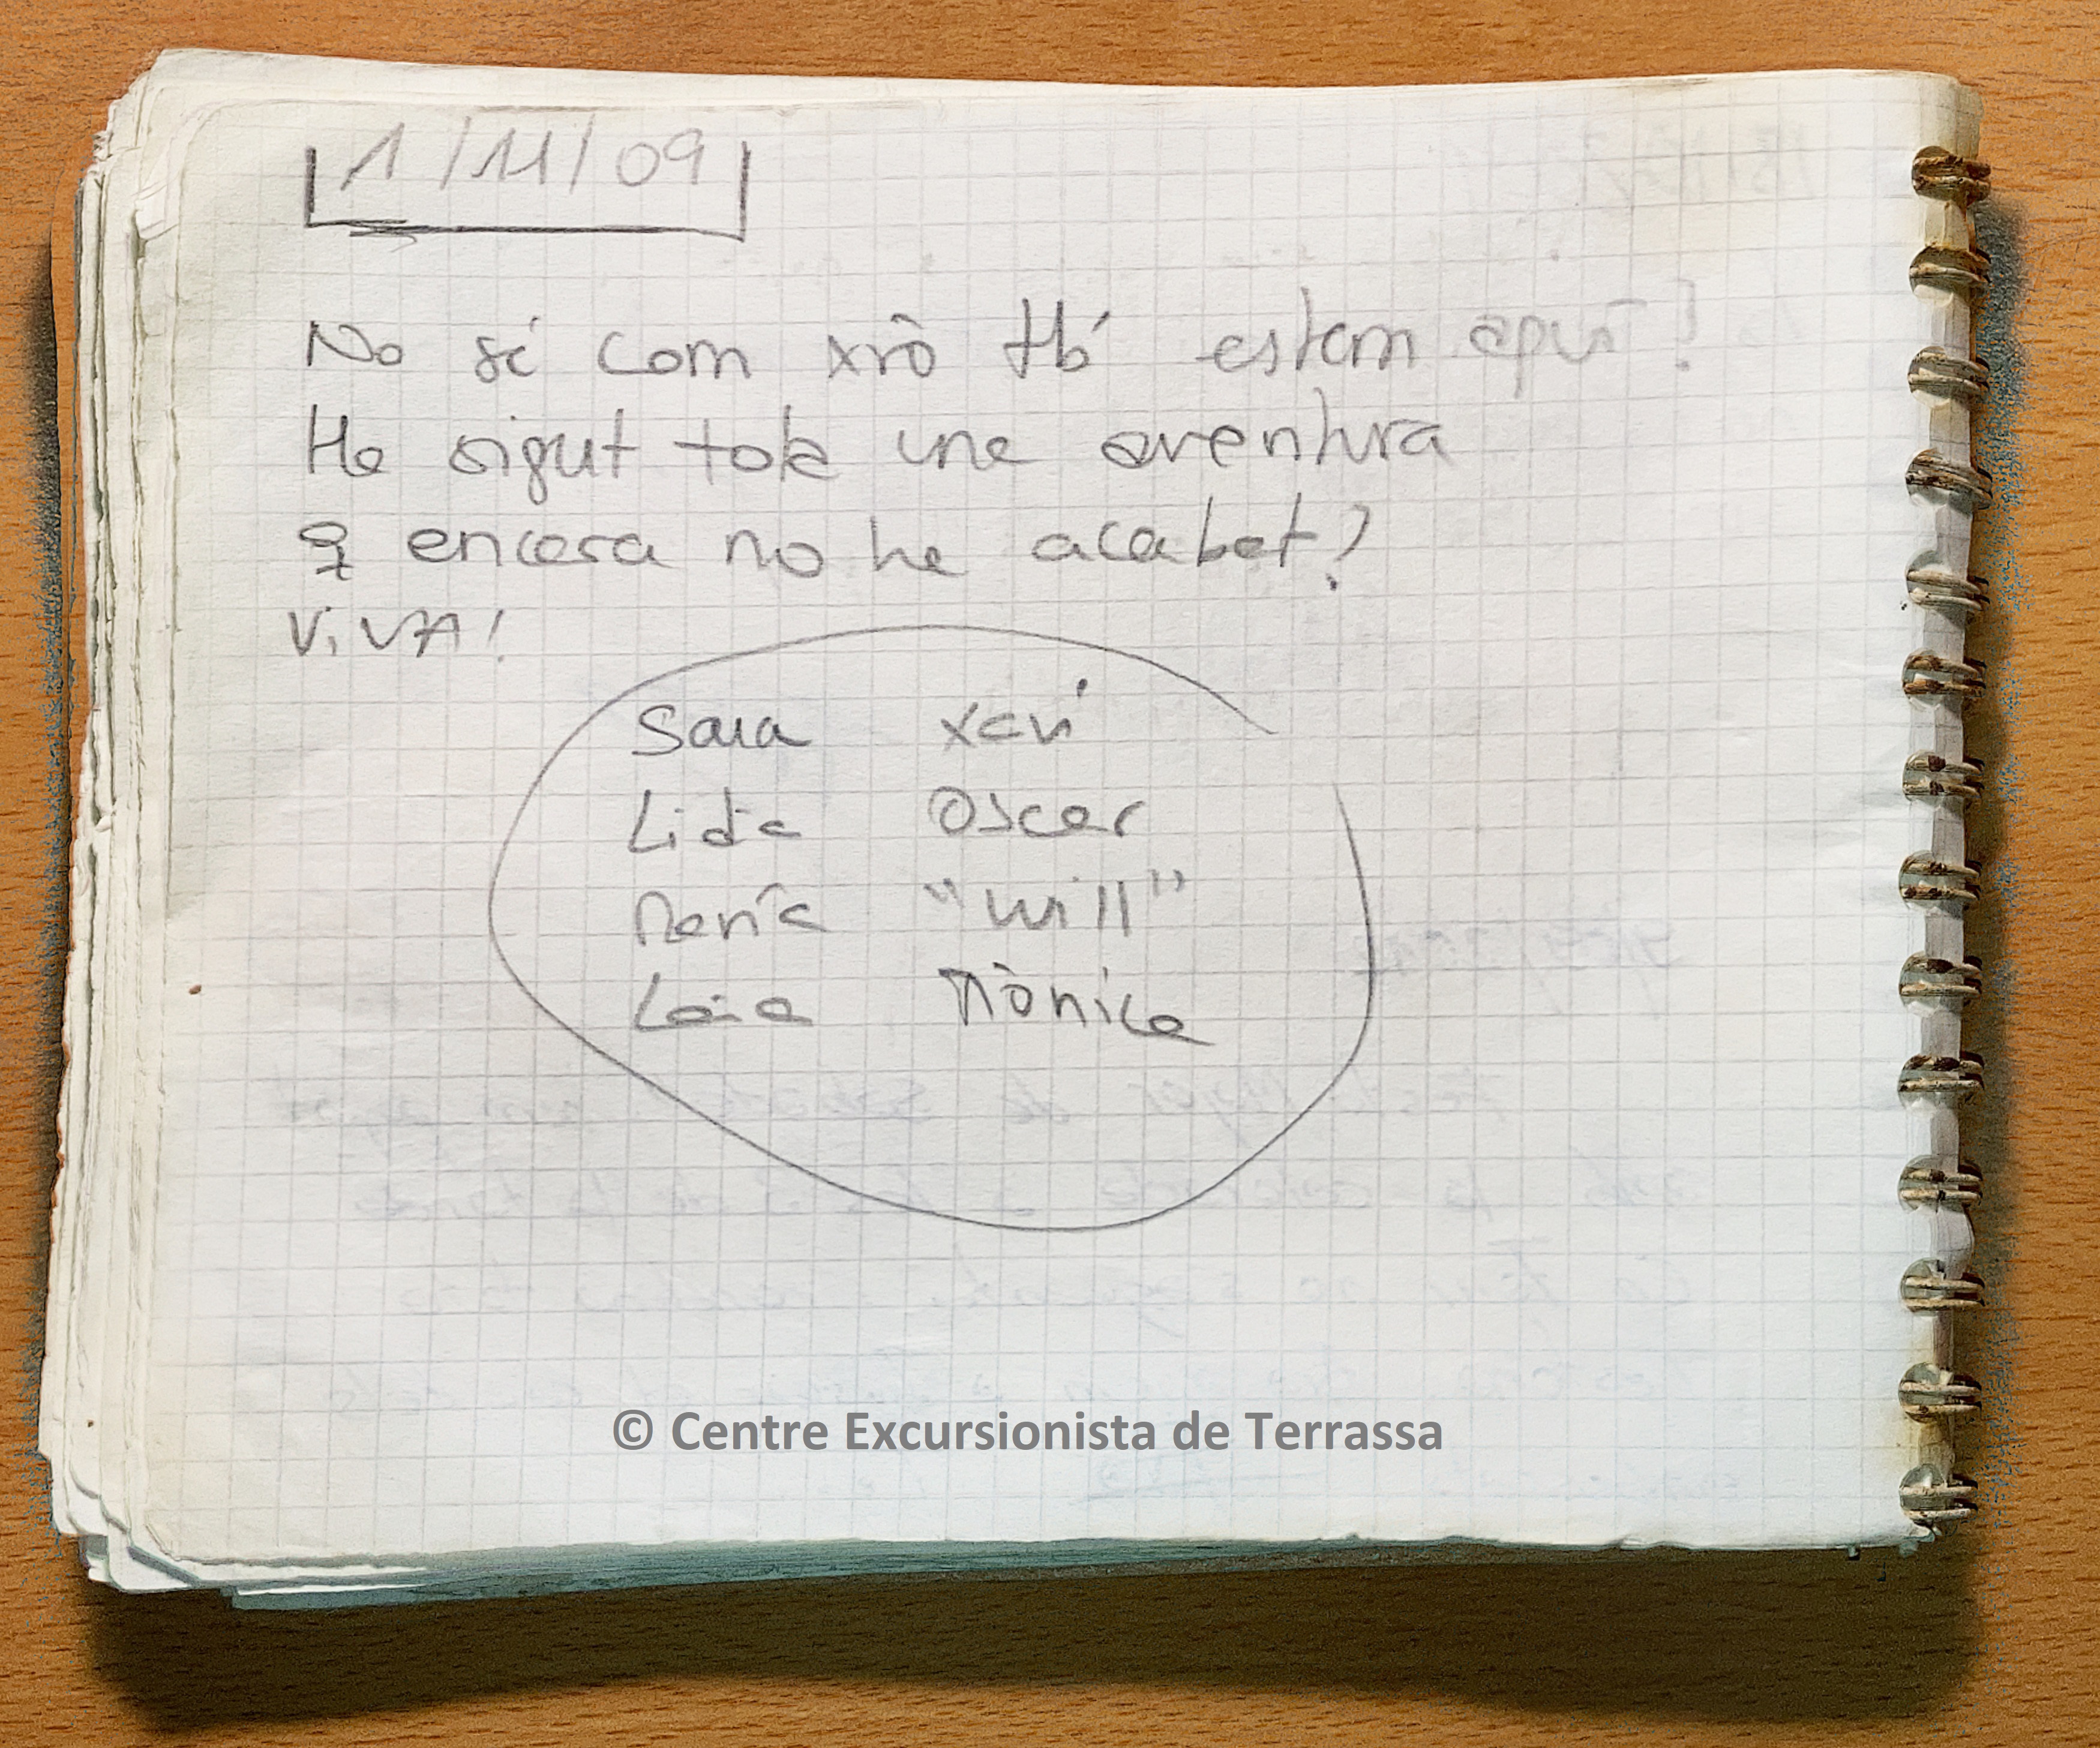 1/11/09
No sé com xrò tb́ estem aquí!
Ha sigut tota una aventura
q encara no ha acabat?
ViVA!
Sara Xavi
Lidia Oscar
Maria "Will"
Laia Mònica
© Centre Excursionista de Terrassa